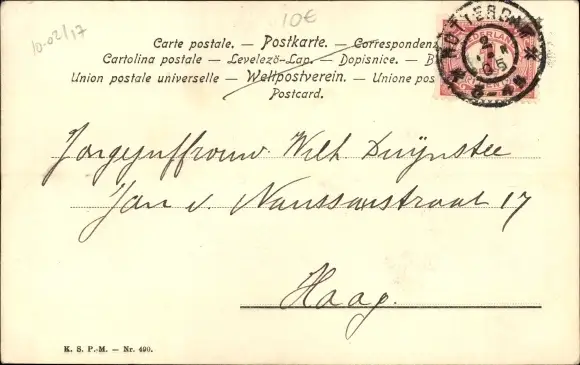 10-02/17
10€
Carte postale. — Postkarte. — Correspondenz
Cartolina postale — Levelező-Lap. — Dopisnice. — B
Union postale universelle — Weltpostverein. — Unione pos
Postcard.
ROTTERDAM
2
05
3-4N
NEDERLAND
Jongejuffrouw Wilh Duijnstee
Jan v. Nanssaustraat 17
Haag.
K. S. P.-M. — Nr. 490.